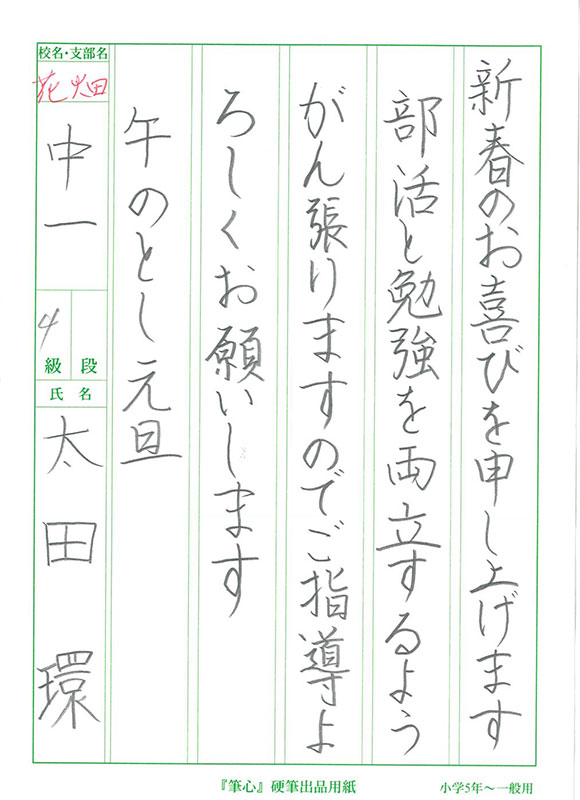 新春のお喜びを申し上げます
部活と勉強を両立するよう
がん張りますのでご指導よ
ろしくお願いします
午のとし元旦
校名・支部名
花畑
中一
4
級 段
氏名
太田環
『筆心』硬筆出品用紙
小学5年〜一般用